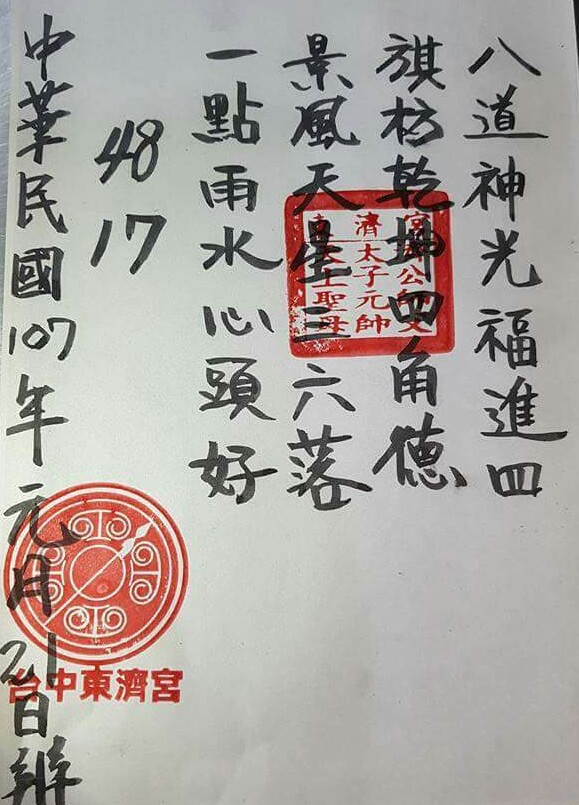 八道神光福進四
旗乾坤四角德
景風天星三六落
一點雨水心頭好
48
17
中華民國107年元月21日辦
東濟宮
濟公師父
太子元帥
天上聖母
台中東濟宮